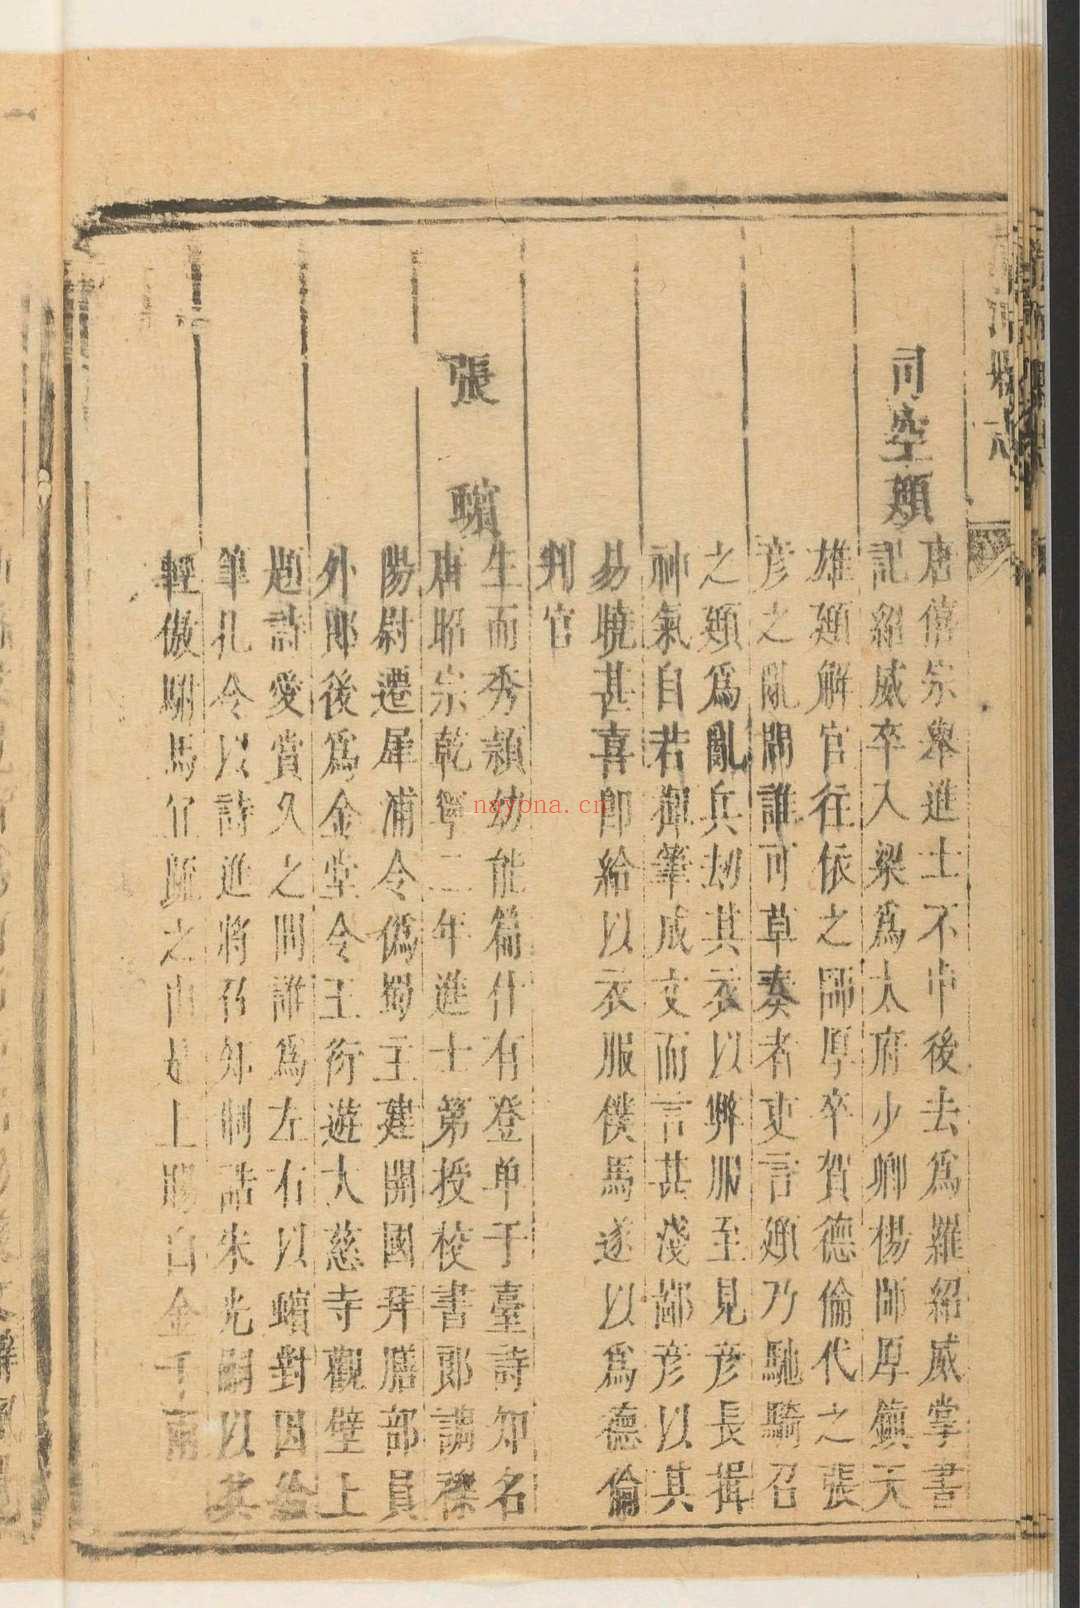 司空頲
唐僖宗舉進士不中後去爲羅紹威掌書
記紹威卒入梁爲太府少卿楊師厚鎮天
雄頲解官往依之師厚卒賀德倫代之張
彦之亂問誰可草奏者吏言頲乃馳騎召
之頲爲亂兵刧其衣以弊服至見彦長揖
神氣自若揮筆成文而言甚淺鄙彦以其
易曉甚喜即給以衣服僕馬遂以爲德倫
判官
張 蠙
生而秀頴幼能篇什有登单于臺詩知名
唐昭宗乾寧二年進士第授校書郎調櫟
陽尉遷犀浦令僞蜀王建開國拜膳部員
外郎後爲金堂令王衍遊大慈寺觀壁上
題詩愛賞久之問誰爲左右以蠙對因給
筆札令以詩進將召知制誥朱光嗣以其
輕傲駙馬宜疏之由是上賜白金千兩
nayona.cn